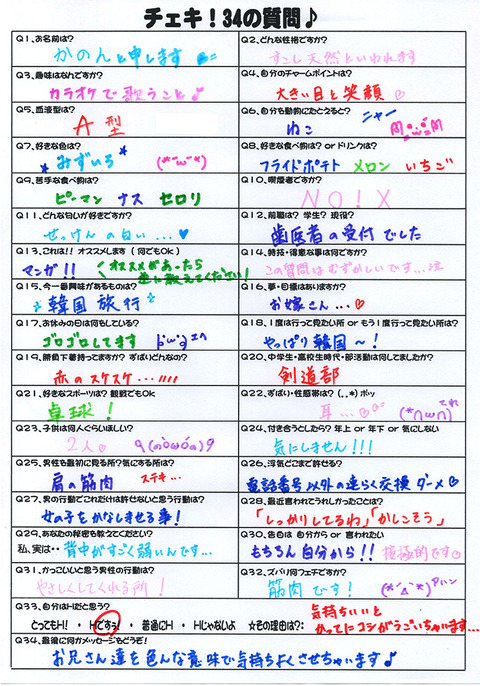 チェキ！34の質問♪
Q1、お名前は？
かのんと申します
Q2、どんな性格ですか？
すこし天然といわれます
Q3、趣味はなんですか？
カラオケで歌うこと♪
Q4、自分のチャームポイントは？
大きい目と笑顔♡
Q5、血液型は？
A型
Q6、自分を動物にたとえると？
ねこ ニャー
Q7、好きな色は？
みずいろ
Q8、好きな食べ物は？ or ドリンクは？
フライドポテト メロン いちご
Q9、苦手な食べ物は？
ピーマン ナス セロリ
Q10、喫煙者ですか？
NO！X
Q11、どんな匂いが好きですか？
せっけんの匂い...♥
Q12、前職は？ 学生？ 現役？
歯医者の受付でした
Q13、これは！！ オススメします（何でもOk）
マンガ！！ オススメがあったら
逆に教えてください！
Q14、特技・得意な事は何ですか？
この質問はむずかしいです...泣
Q15、今一番興味があるものは？
韓国旅行
Q16、夢・目標はありますか？
お嫁さん...♡
Q17、お休みの日は何をしている？
ゴロゴロしてます
Q18、1度は行って見たい所 or もう1度行って見たい所は？
やっぱり韓国〜！
Q19、勝負下着持ってますか？ ずばりどんなの？
赤のスケスケ...
Q20、中学生・高校生時代・部活動は何してましたか？
剣道部
Q21、好きなスポーツは？ 観戦でもOk
卓球！
Q22、ずばり・性感帯は？（．．*）ポッ
耳...♡ (*∩ω∩) てれ
Q23、子供は何人ぐらいほしい？
2人♡
Q24、付き合うとしたら？ 年上 or 年下 or 気にしない
気にしません！！！
Q25、男性を最初に見る所？気にする所は？
肩の筋肉 ステキ...
Q26、浮気どこまで許せる？
電話番号以外の連らく交換ダーメ♡
Q27、男の行動でこれだけは許せないと思う行動は？
女の子をかなしませる事！
Q28、最近言われてうれしかったことは？
「しっかりしてるね」「かしこそう」
Q29、あなたの秘密を教えてください？
私、実は・・ 背中がすごく弱いんです...
Q30、告白は 自分から or 言われたい
もちろん自分から！！ 積極的です♡
Q31、かっこいいと思う男性の行動は？
やさしくしてくれる所！
Q32、ズバリ何フェチですか？
筋肉です！ アハン
Q33、自分はHだと思う？
とってもH！ ・ Hですぅ！ ・ 普通にH ・ Hじゃないよ ☆その理由は？：
気持ちいいと
かってにコシがうごいちゃいます...
Q34、最後に何かメッセージをどうぞ！
お兄さん達を色んな意味で気持ちよくさせちゃいます♪